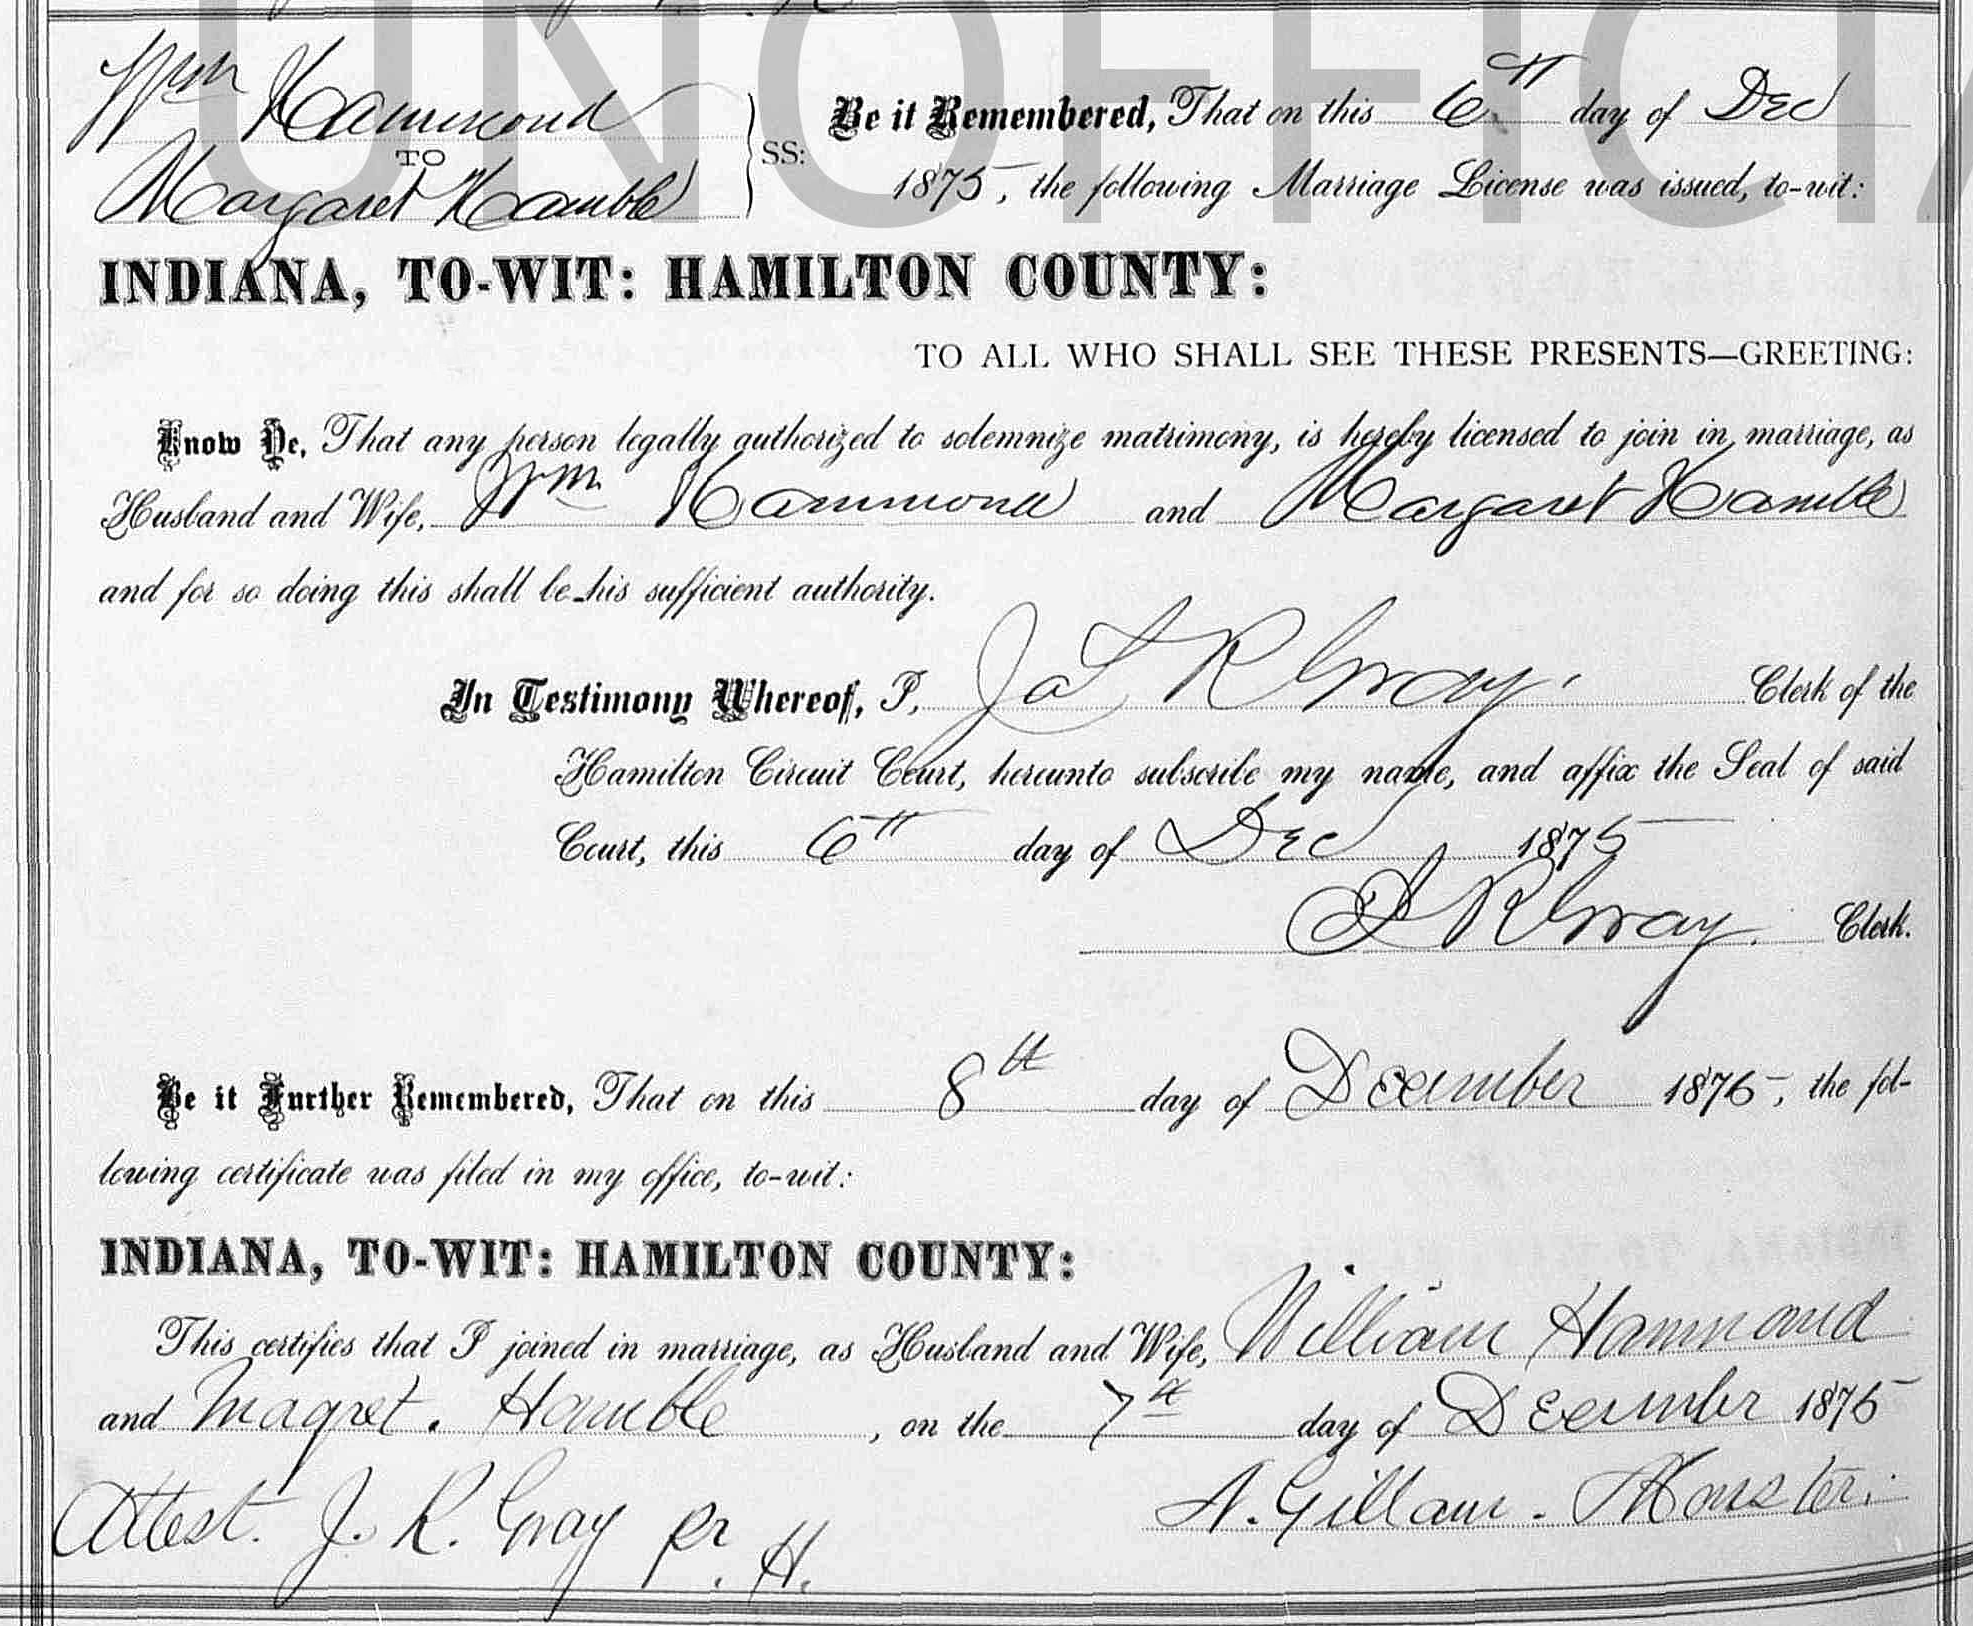 UNOFFICIA
Wm Hammond
TO
Margaret Hamble
SS:
Be it Remembered, That on this 6th day of Dec
1875, the following Marriage License was issued, to-wit:
INDIANA, TO-WIT: HAMILTON COUNTY:
TO ALL WHO SHALL SEE THESE PRESENTS—GREETING:
Know Ye, That any person legally authorized to solemnize matrimony, is hereby licensed to join in marriage, as
Husband and Wife, Wm Hammond and Margaret Hamble
and for so doing this shall be his sufficient authority.
In Testimony Whereof, I, R Gray. Clerk of the
Hamilton Circuit Court, hereunto subscribe my name, and affix the Seal of said
Court, this 6th day of Dec 1875
R Gray. Clerk.
Be it Further Remembered, That on this 8th day of December 1875, the fol-
lowing certificate was filed in my office, to-wit:
INDIANA, TO-WIT: HAMILTON COUNTY:
This certifies that I joined in marriage, as Husband and Wife, William Hammond
and Magret. Hamble, on the 7th day of December 1875
A. Gillam.
Attest. J. R. Gray pr. H.